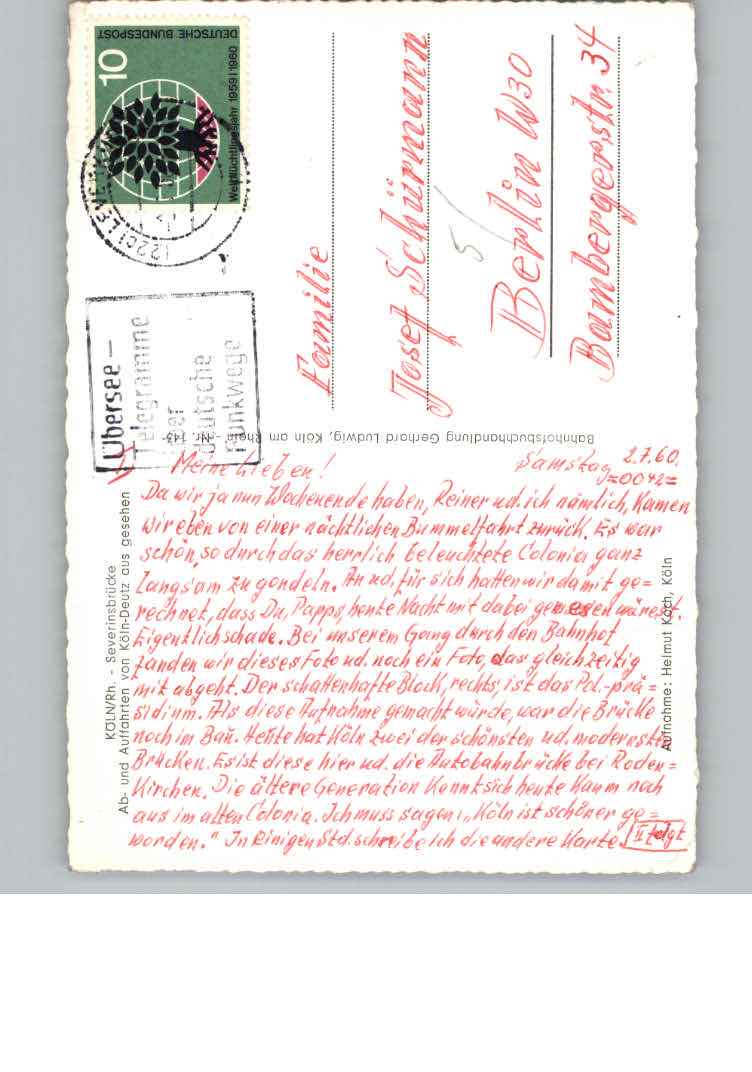 DEUTSCHE BUNDESPOST
10
Weltflüchtlingsjahr 1959 | 1960
(22c) LEVE
Übersee –
Telegramme
über
deutsche
Funkwege
Familie
Josef Schürmann
Berlin W30
Bambergerstr. 34
5
Bahnhofsbuchhandlung Gerhard Ludwig, Köln am Rhein - Nr. 143
KÖLN/Rh. - Severinsbrücke
Ab- und Auffahrten von Köln-Deutz aus gesehen
Aufnahme: Helmut Koch, Köln
I
Samstag 2.7.60.
=0042=
Meine Lieben!
Da wir ja nun Wochenende haben, Reiner ud. ich nämlich, kamen
wir eben von einer nächtlichen Bummelfahrt zurück. Es war
schön, so durch das herrlich beleuchtete Colonia ganz
langsam zu gondeln. An ud. für sich hatten wir damit ge=
rechnet, dass Du, Papps, heute Nacht mit dabei gewesen wärest.
Eigentlich schade. Bei unserem Gang durch den Bahnhof
fanden wir dieses Foto ud. noch ein Foto, das gleichzeitig
mit abgeht. Der schattenhafte Block, rechts, ist das Pol.-prä=
sidium. Als diese Aufnahme gemacht würde, war die Brücke
noch im Bau. Heute hat Köln zwei der schönsten ud. modernsten
Brücken. Es ist diese hier ud. die Autobahnbrücke bei Roden=
kirchen. Die ältere Generation kennt sich heute kaum noch
aus im alten Colonia. Ich muss sagen: „Köln ist schöner ge=
worden." In einigen Std. schreibe ich die andere Karte.
II folgt